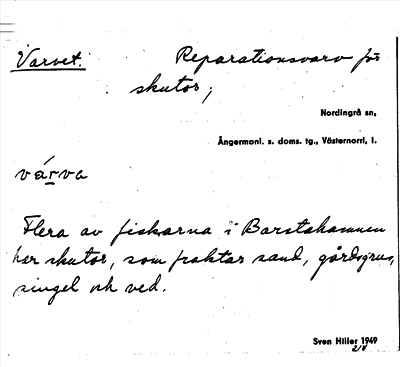 Varvet. Reparationsvarv för
skutor;
Nordingrå sn,
Ångermanl. s. doms. tg., Västernorrl. l.
várva
Flera av fiskarna i Barstahamnen
har skutor, som fraktar sand, gårdsgrus,
singel och ved.
Sven Hiller 1949